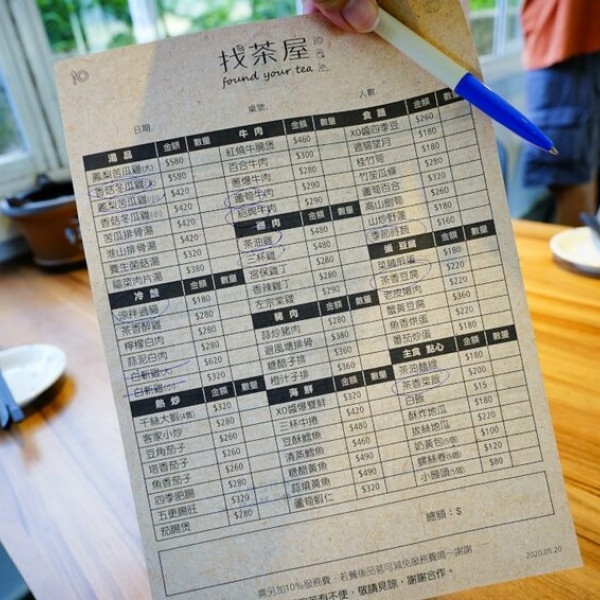 找茶屋
found your tea
日期.
桌號.
人數.
湯品 金額 數量
鳳梨苦瓜雞(大) $580
香菇冬瓜雞(大) $580
鳳梨苦瓜雞(小) $420
香菇冬瓜雞(小) $420
苦瓜排骨湯 $420
淮山排骨湯 $420
養生菌菇湯 $320
榨菜肉片湯 $380
冷盤 金額 數量
涼拌過貓 $180
茶香醉雞 $280
檸檬白肉 $280
蒜泥白肉 $280
白斬雞(大) $620
白斬雞(小) $320
熱炒 金額 數量
千絲大蝦(4隻) $320
客家小炒 $280
豆角茄子 $260
塔香茄子 $260
魚香茄子 $260
四季肥腸 $280
五更腸旺 $320
茄腸煲 $280
牛肉 金額 數量
紅燒牛腩煲 $460
百合牛肉 $300
蔥爆牛肉 $280
蘆筍牛肉 $290
給蔥牛肉 $290
雞肉 金額 數量
茶油雞 $480
三杯雞 $480
宮保雞丁 $280
香辣雞丁 $280
左宗棠雞 $290
豬肉 金額 數量
蒜炒豬肉 $280
避風塘排骨 $380
糖醋子排 $360
橙汁子排 $360
海鮮 金額 數量
XO醬爆雙鮮 $320
三杯中捲 $420
豆酥鱈魚 $480
清蒸鱈魚 $460
糖醋黃魚 $490
蒜燒黃魚 $490
蘆筍蝦仁 $320
食蔬 金額 數量
XO醬四季豆 $260
過貓望月 $180
桂竹筍 $180
竹笙瓜條 $220
蘆筍百合 $320
高山劍筍 $260
山炒野蓮 $180
季節時蔬 $160
蛋 豆腐 金額 數量
菜脯煎蛋 $180
茶香豆腐 $220
老皮嫩肉 $220
蟹黃豆腐 $360
魚香烘蛋 $220
番茄炒蛋 $180
主食 點心 金額 數量
茶油麵線 $180
茶香菜飯 $200
白飯 $15
酥炸地瓜 $180
拔絲地瓜 $220
奶黃包(5個) $100
螺絲卷(5個) $120
小饅頭(5個) $80
總額：$
需另加10%服務費，若餐後品茗可減免服務費唷～謝謝
不便，敬請見諒，謝謝合作。
2020.05.20